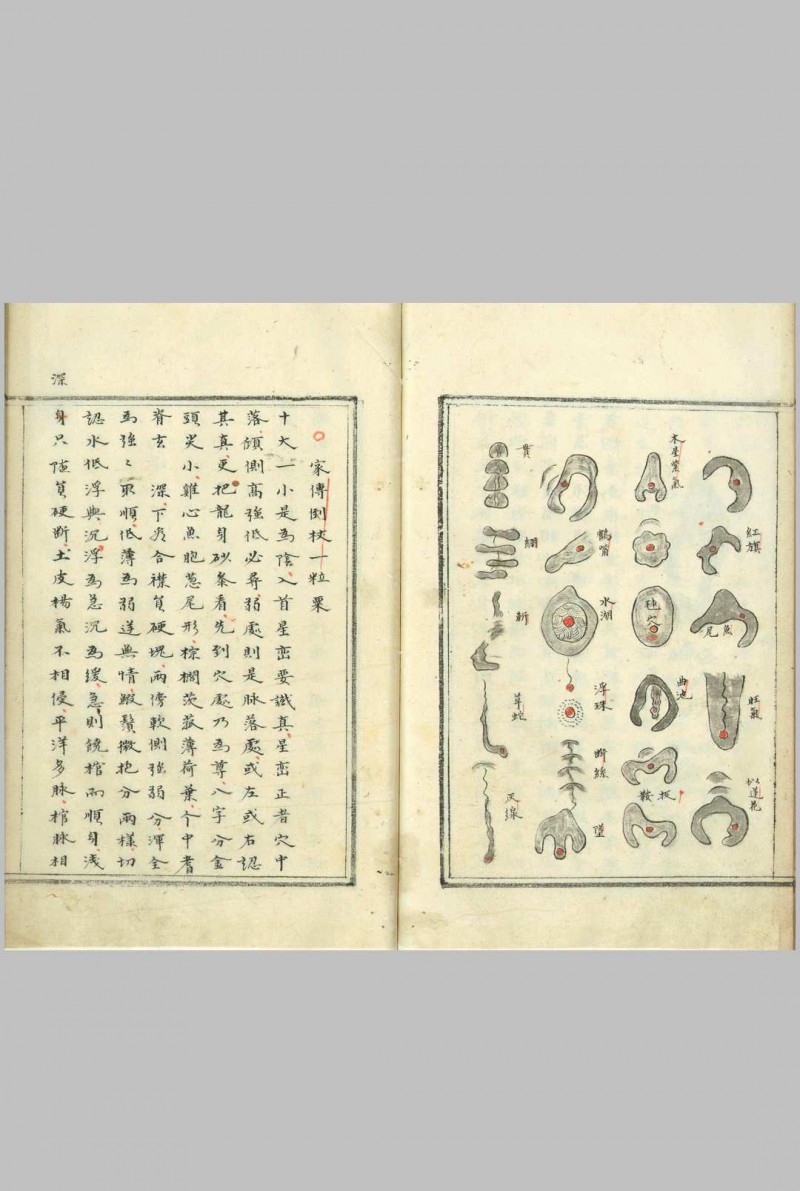 木星紫氣
貫
紅旗
鶴嘴
綳
毬穴
水湖
斬
魚尾
曲池
浮珠
草蛇
旺龍
断絲
仄線
蓮花
鞍
墜
家傳倒杖一粒粟
十大一小是為陰入首星峦要識真星峦正者穴中
落傾側高強低必尋弱處則是脉落處或左或右認
其真更把龍身砂条看先到穴處乃為尊八字分金
頭尖小雞心魚胞葱尾形棕櫚茨菰薄荷葉个中者
脊玄 深下為合襟質硬塊兩傍軟側強弱分渾全
為強〻取順低薄為弱逆無情蝦鬚微抱分兩樣切
認水低浮與沉浮為急沉為緩急則饒棺而順身浅
身只隨質硬断土皮楊氣不相侵平洋多脉棺脉相
深